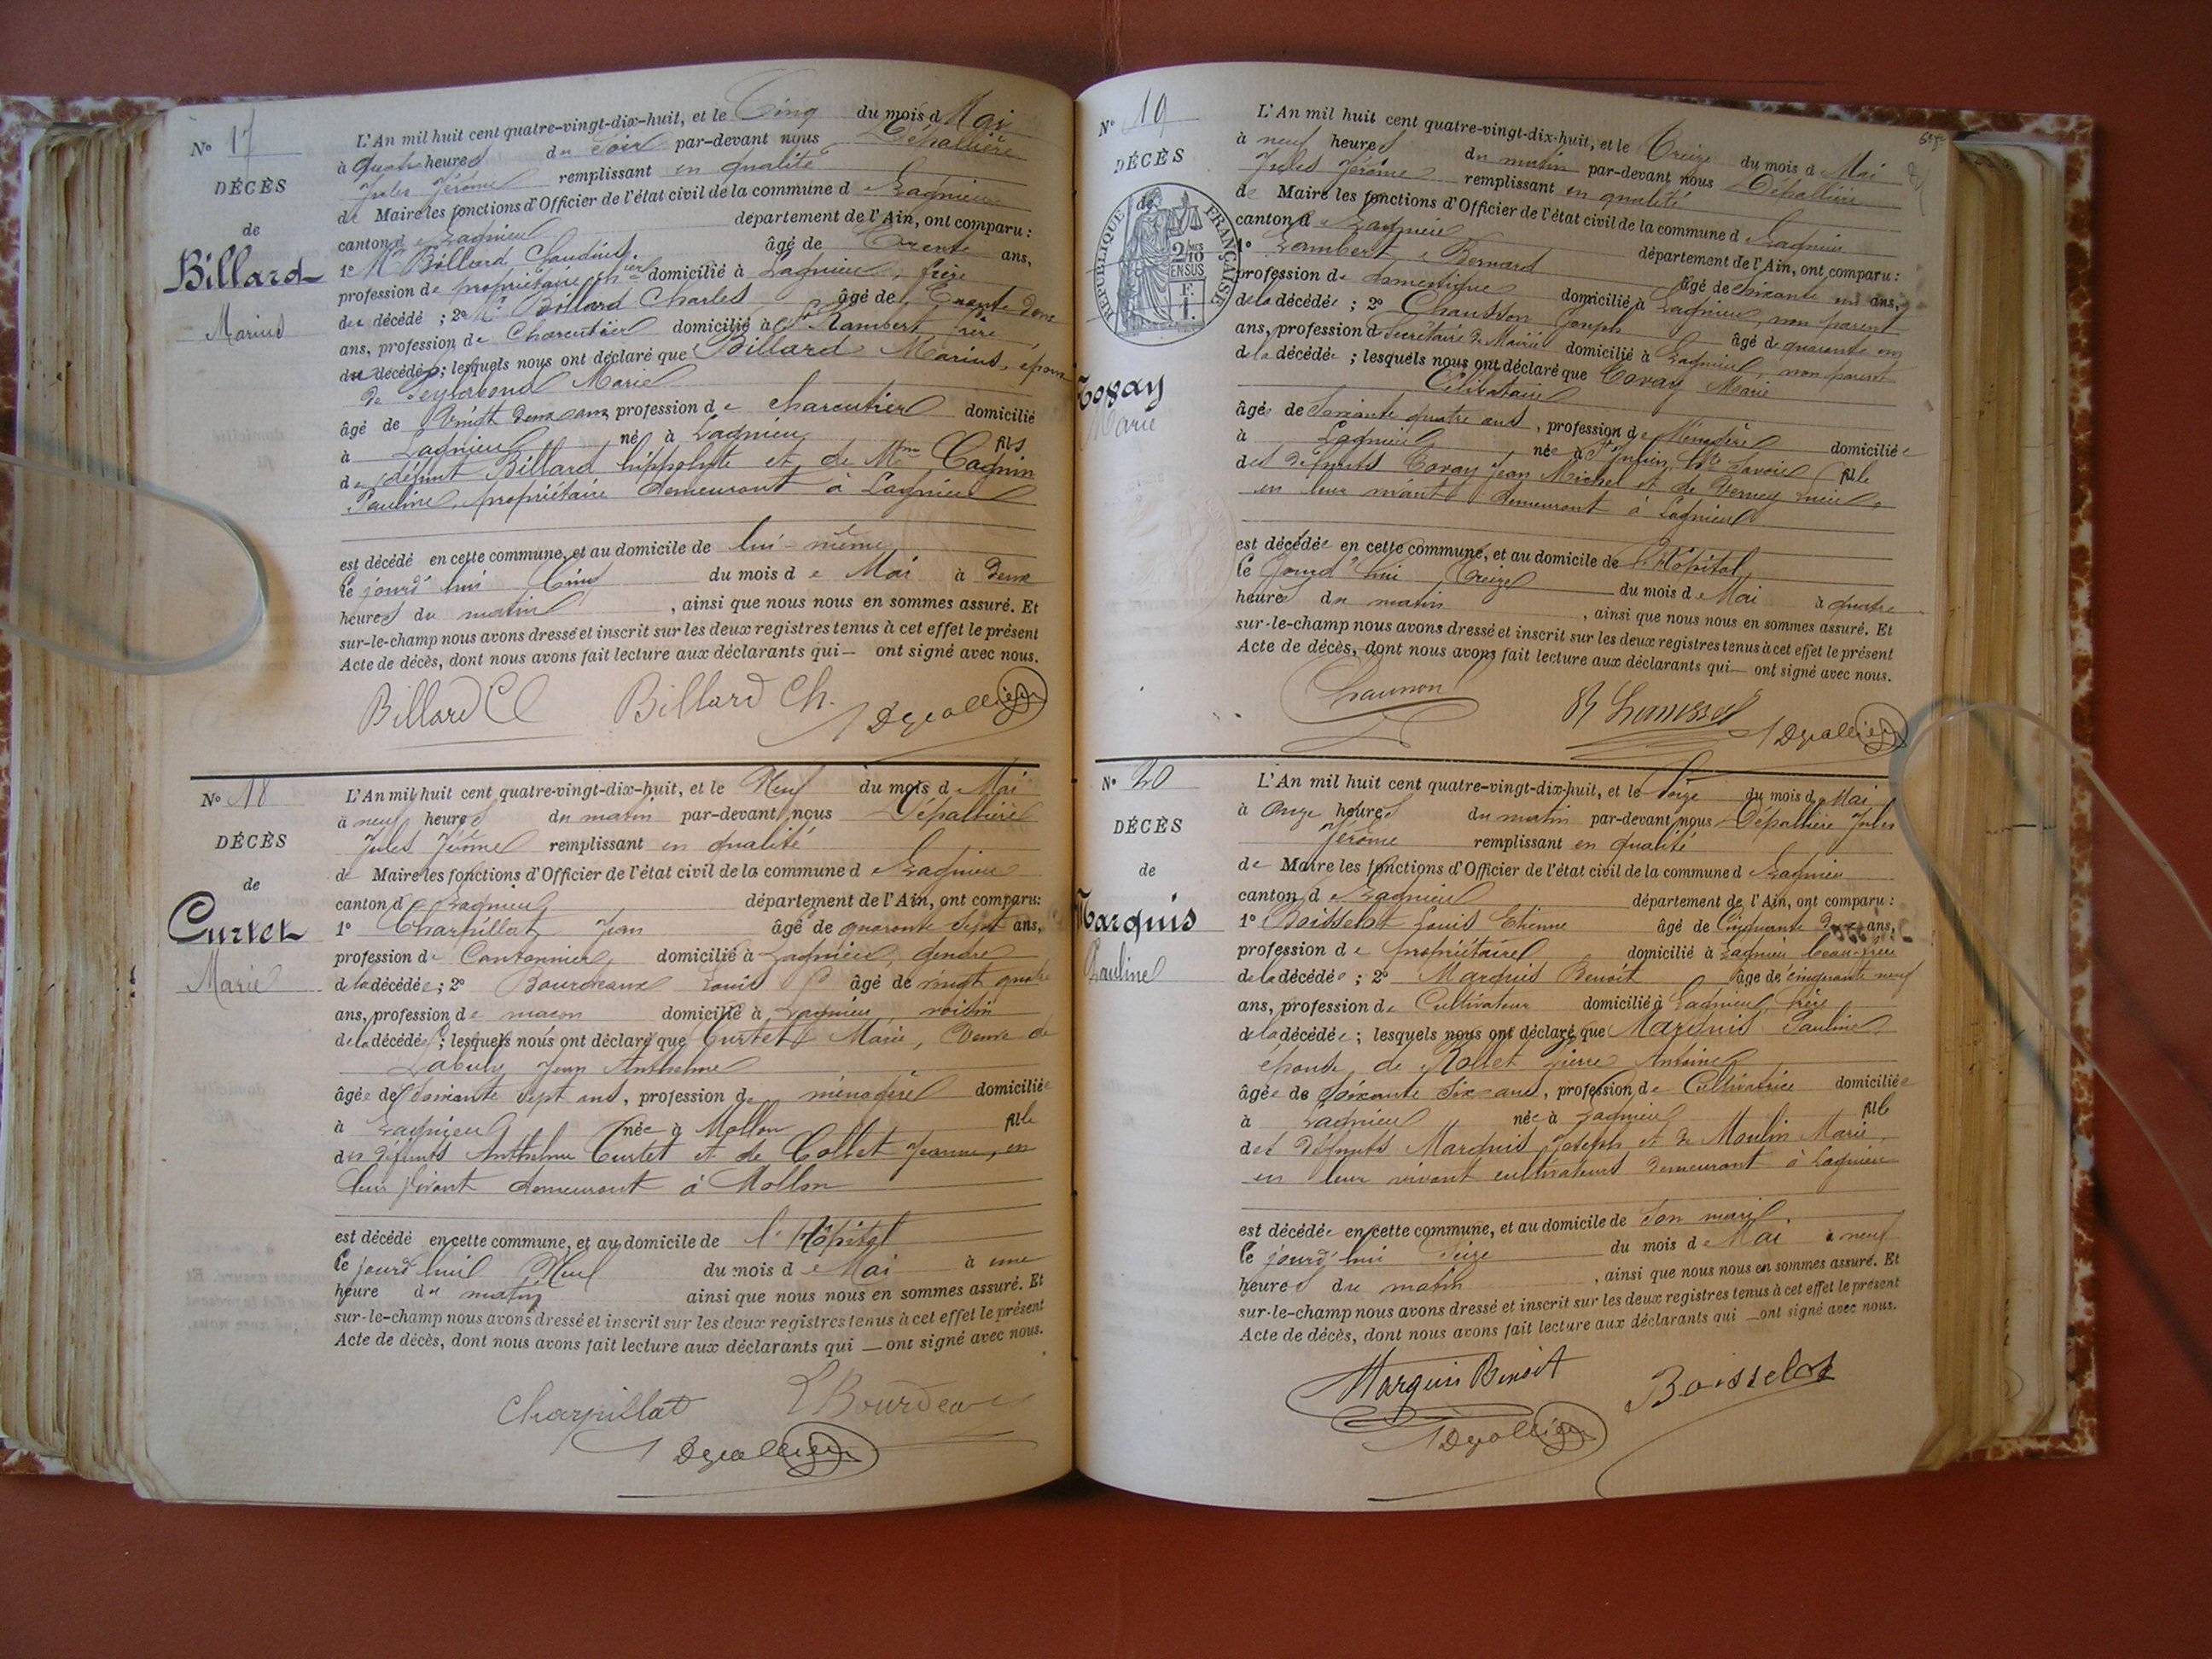 N° 17
DÉCÈS
de
Billard
Marius
L'An mil huit cent quatre-vingt-dix-huit, et le Cinq du mois d Mai
à quatre heures du soir par-devant nous Dépallière
Jules Jérôme remplissant en qualité
de Maire les fonctions d'Officier de l'état civil de la commune d e Lagnieu
canton d e Lagnieu département de l'Ain, ont comparu :
1° Mr Billard Claudius âgé de Trente ans,
profession de propriétaire domicilié à Lagnieu, frère
du décédé ; 2° Mr Billard Charles âgé de Trente deux
ans, profession de Charcutier domicilié à St Rambert, frère,
du décédé ; lesquels nous ont déclaré que Billard Marius, époux
de Marie
âgé de Vingt deux ans profession d e charcutier domicilié
à Lagnieu né à Lagnieu fils
de défunt Billard hippolyte et de Mme Cagnin
Pauline, propriétaire demeurant à Lagnieu
est décédé en cette commune, et au domicile de lui-même
le jourd'hui Cinq du mois d e Mai à Deux
heures du matin, ainsi que nous nous en sommes assuré. Et
sur-le-champ nous avons dressé et inscrit sur les deux registres tenus à cet effet le présent
Acte de décès, dont nous avons fait lecture aux déclarants qui — ont signé avec nous.
Billard Cl Billard Ch. J Depallière
N° 18
DÉCÈS
de
Curtet
Marie
L'An mil huit cent quatre-vingt-dix-huit, et le Neuf du mois d e Mai
à neuf heures du matin par-devant nous Dépallière
Jules Jérôme remplissant en qualité
de Maire les fonctions d'Officier de l'état civil de la commune d e Lagnieu
canton d e Lagnieu département de l'Ain, ont comparu:
1° Charpillat Jean âgé de quarante sept ans,
profession de Cantonnier domicilié à Lagnieu, gendre
de la décédée ; 2° Bourdeaux Louis âgé de vingt quatre
ans, profession de maçon domicilié à Lagnieu, voisin
de la décédée ; lesquels nous ont déclaré que Curtet Marie, Veuve de
Jean Anthelme
âgée de Soixante sept ans, profession de ménagère domiciliée
à Lagnieu née à Mollon fille
des défunts Anthelme Curtet et de Collet Jeanne, en
leur vivant demeurant à Mollon
est décédé en cette commune, et au domicile de l'Hôpital
le jourd'hui Neuf du mois d e Mai à une
heure du matin ainsi que nous nous en sommes assuré. Et
sur-le-champ nous avons dressé et inscrit sur les deux registres tenus à cet effet le présent
Acte de décès, dont nous avons fait lecture aux déclarants qui — ont signé avec nous.
Charpillat L Bourdeaux
J Depallière
N° 19
DÉCÈS
RÉPUBLIQUE FRANÇAISE
2/10 EN SUS
Tovay
Marie
L'An mil huit cent quatre-vingt-dix-huit, et le Treize du mois d Mai
à neuf heures du matin par-devant nous Dépallière
Jules Jérôme remplissant en qualité
de Maire les fonctions d'Officier de l'état civil de la commune d e Lagnieu
canton d e Lagnieu département de l'Ain, ont comparu :
1° Lambert Bernard âgé de soixante un ans,
profession de domestique domicilié à Lagnieu, non parent
de la décédée ; 2° Chausson Joseph âgé de quarante un
ans, profession d Secrétaire de Mairie domicilié à Lagnieu, non parent
de la décédée ; lesquels nous ont déclaré que Tovay Marie
Célibataire
âgée de Soixante quatre ans, profession de Ménagère domiciliée
à Lagnieu née à St Julien Hte Savoie fille
des défunts Tovay Jean Michel et de Verney
en leur vivant demeurant à Lagnieu
est décédée en cette commune, et au domicile de l'Hôpital
le Jourd'hui Treize du mois d e Mai à quatre
heures du matin, ainsi que nous nous en sommes assuré. Et
sur-le-champ nous avons dressé et inscrit sur les deux registres tenus à cet effet le présent
Acte de décès, dont nous avons fait lecture aux déclarants qui — ont signé avec nous.
Chausson J Depallière
N° 20
DÉCÈS
de
Marquis
Pauline
L'An mil huit cent quatre-vingt-dix-huit, et le Seize du mois d e Mai
à Onze heures du matin par-devant nous Dépallière Jules
Jérôme remplissant en qualité
de Maire les fonctions d'Officier de l'état civil de la commune d e Lagnieu
canton d e Lagnieu département de l'Ain, ont comparu :
1° Boisselot Louis Etienne âgé de Cinquante Deux ans,
profession de propriétaire domicilié à Lagnieu beau-frère
de la décédée ; 2° Marquis Benoît âgé de cinquante neuf
ans, profession de Cultivateur domicilié à Lagnieu, frère
de la décédée ; lesquels nous ont déclaré que Marquis Pauline
épouse de Rollet Pierre Antoine
âgée de Soixante Six ans, profession de Cultivatrice domiciliée
à Lagnieu née à Lagnieu fille
des Défunts Marquis Joseph et de Moulin Marie,
en leur vivant cultivateurs demeurant à Lagnieu
est décédée en cette commune, et au domicile de Son mari
le jourd'hui Seize du mois d e Mai à neuf
heures du matin, ainsi que nous nous en sommes assuré. Et
sur-le-champ nous avons dressé et inscrit sur les deux registres tenus à cet effet le présent
Acte de décès, dont nous avons fait lecture aux déclarants qui — ont signé avec nous.
Marquis Benoit Boisselot
J Depallière